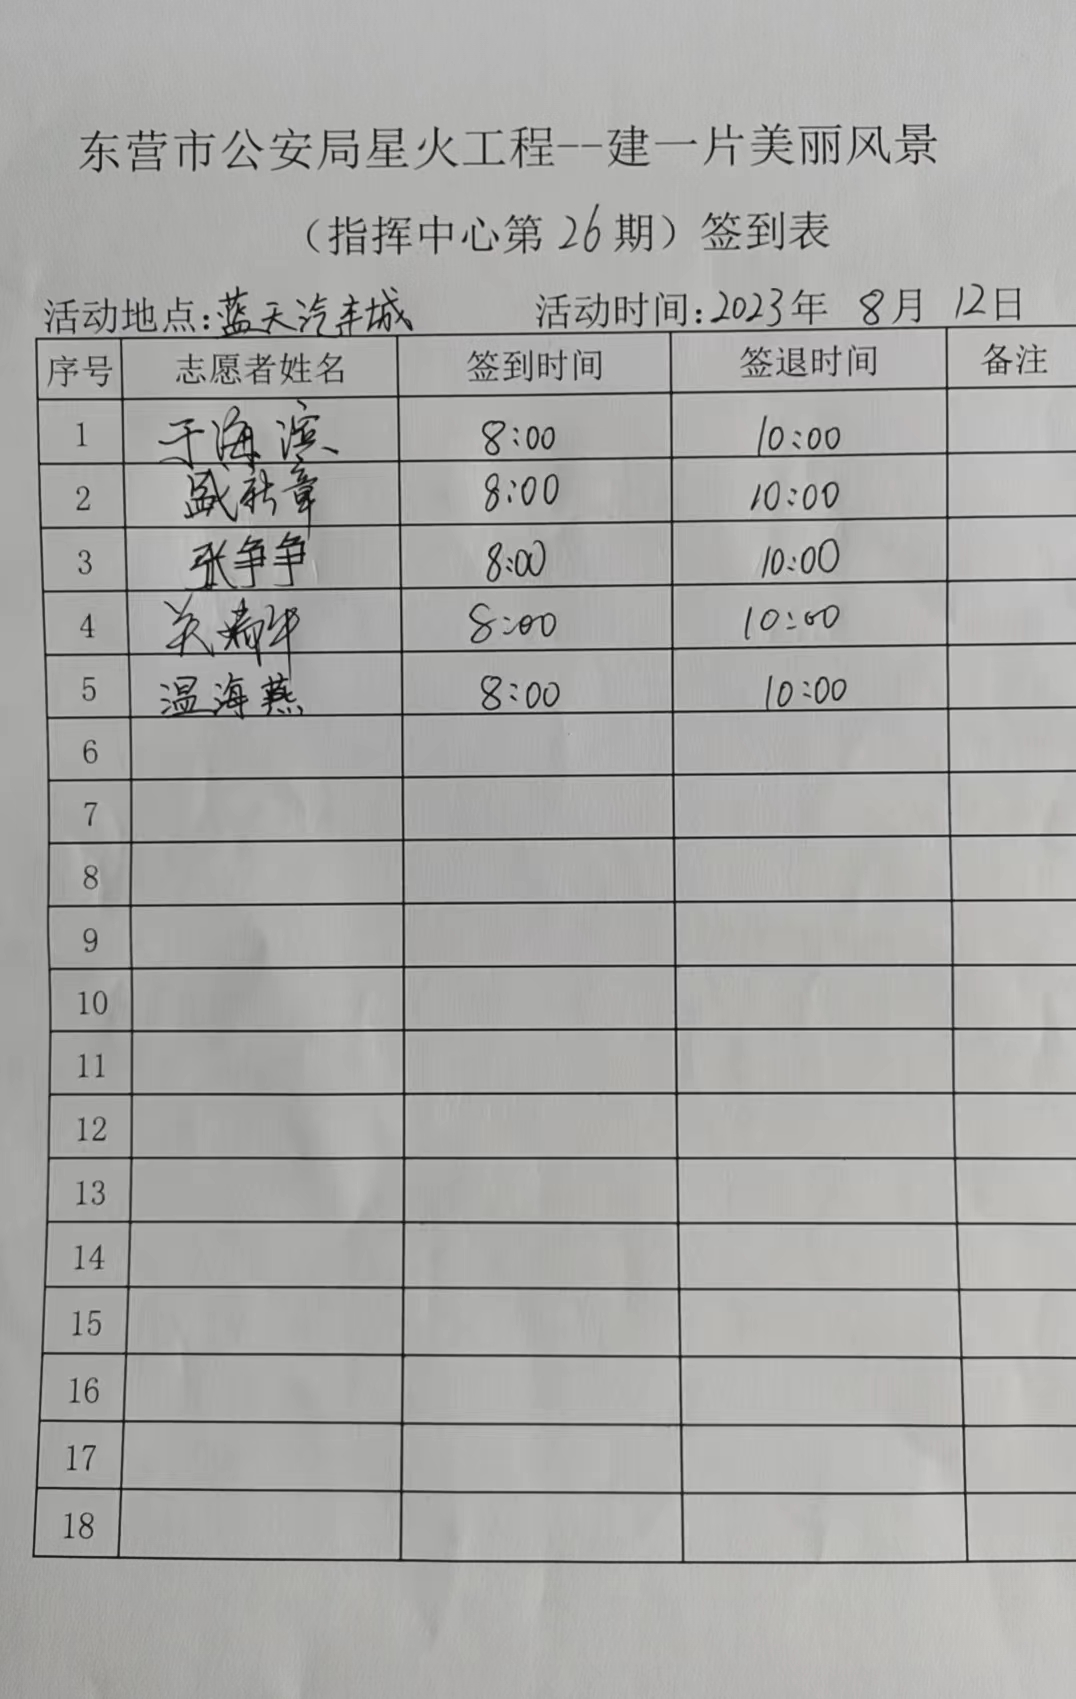 东营市公安局星火工程--建一片美丽风景
（指挥中心第26期）签到表
活动地点:蓝天汽车城 活动时间:2023年 8月 12日
序号 志愿者姓名 签到时间 签退时间 备注
1 于海滨 8:00 10:00
2 盛新章 8:00 10:00
3 张争争 8:00 10:00
4 关 8:00 10:00
5 温海燕 8:00 10:00
6
7
8
9
10
11
12
13
14
15
16
17
18